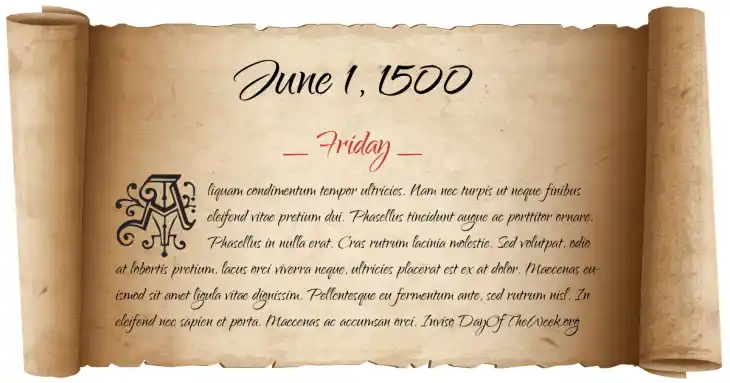 June 1, 1500
__ Friday __
Aliquam condimentum tempor ultricies. Nam nec turpis ut neque finibus
eleifend vitae pretium dui. Phasellus tincidunt augue ac porttitor ornare.
Phasellus in nulla erat. Cras rutrum lacinia molestie. Sed volutpat, odio
at lobortis pretium, lacus orci viverra neque, ultricies placerat est ex at dolor. Maecenas eu-
ismod sit amet ligula vitae dignissim. Pellentesque eu fermentum ante, sed rutrum nisl. In
eleifend nec sapien et porta. Maecenas ac accumsan orci. Inviso DayOfTheWeek.org